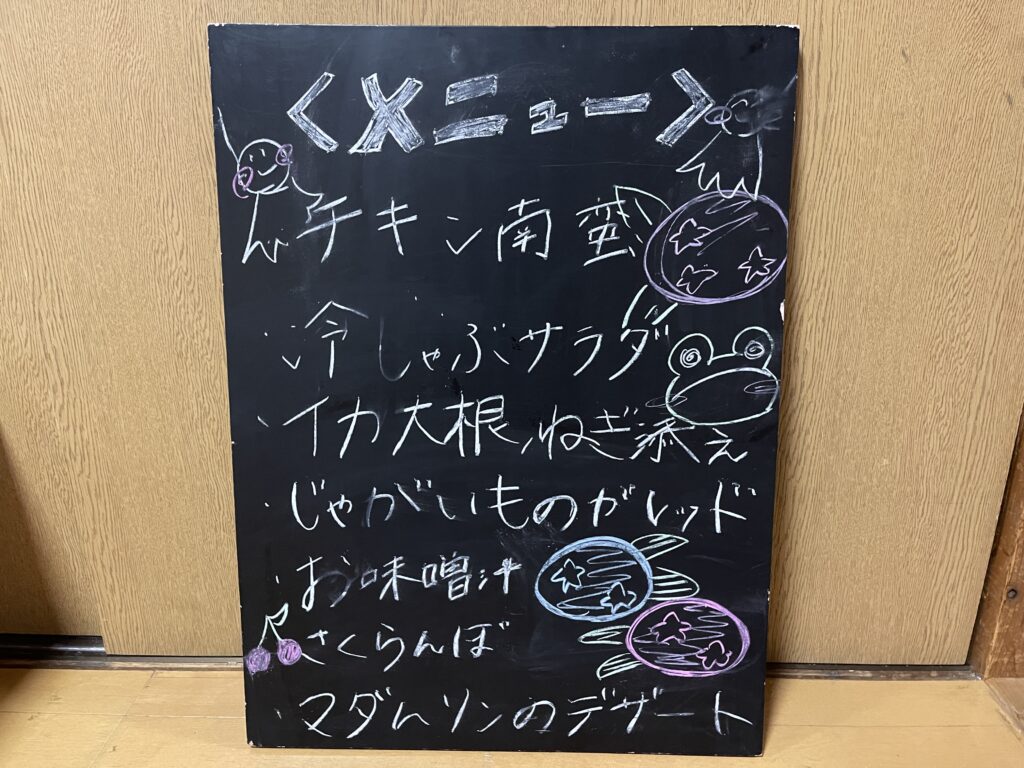 <メニュー>
チキン南蛮
・冷しゃぶサラダ
・イカ大根、ねぎ添え
・じゃがいものガレッド
・お味噌汁
さくらんぼ
・マダムソンのデザート